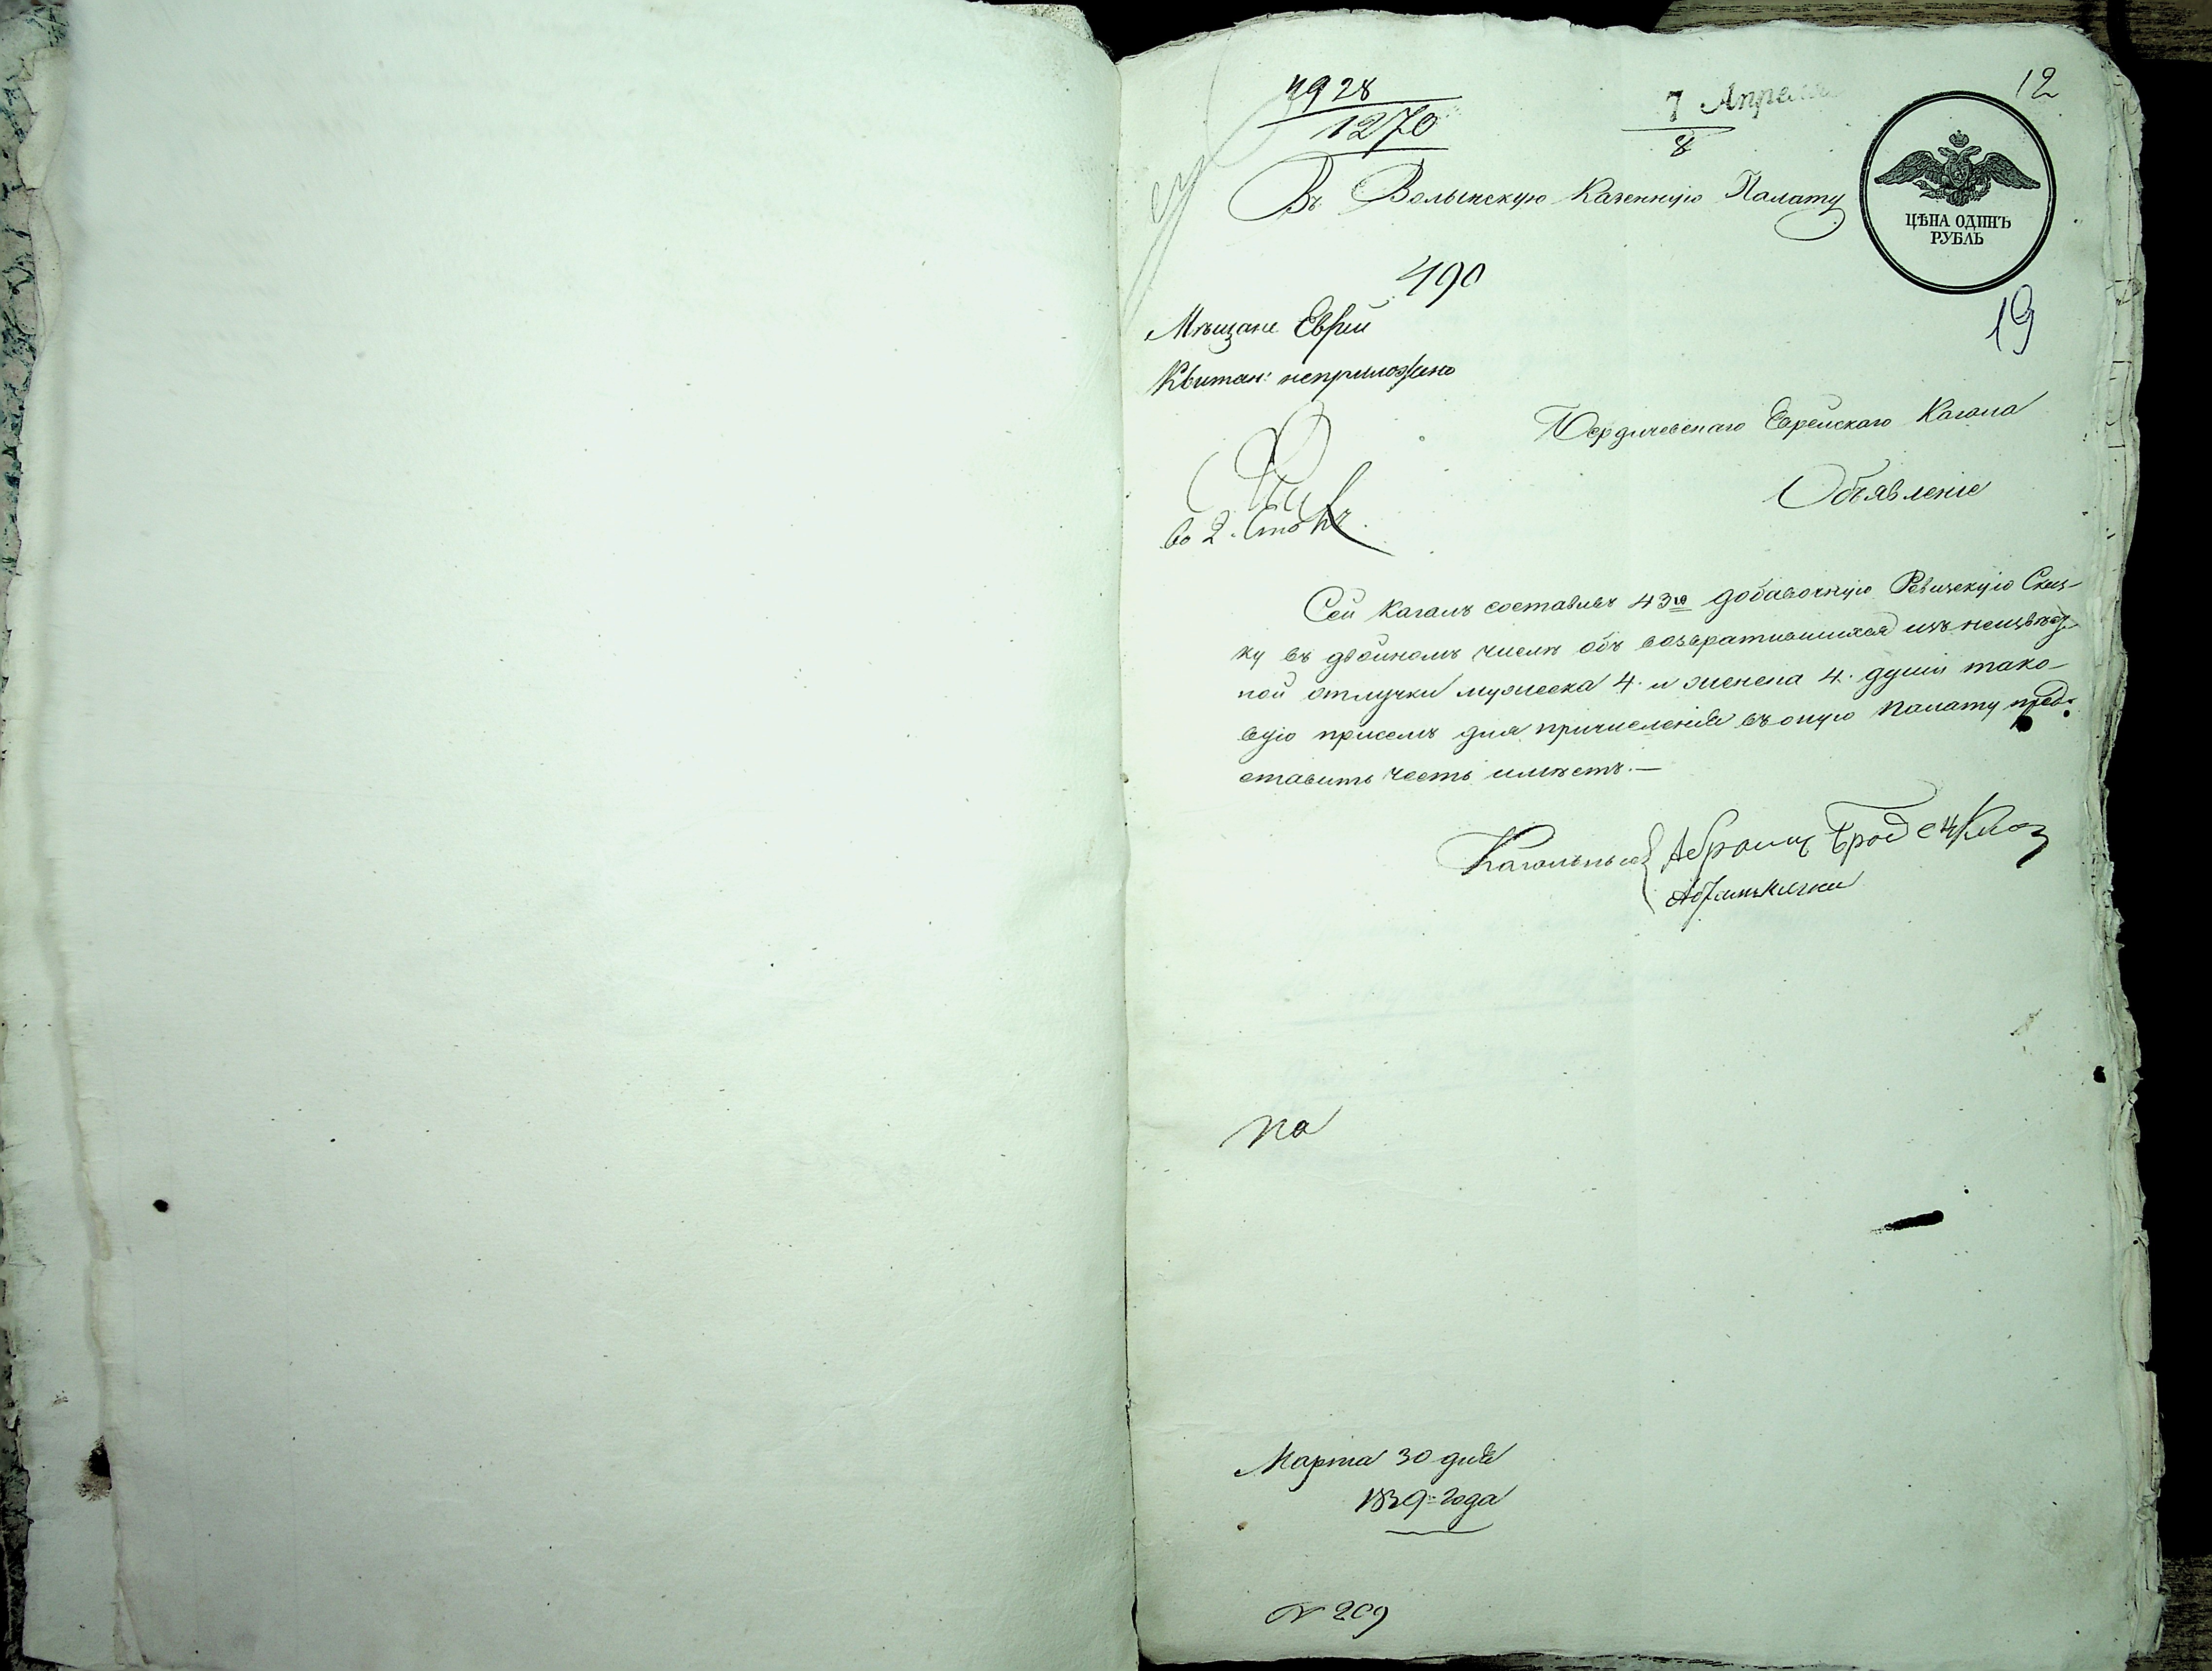 7928
1270
7 Апреля
8
12
Въ Волынскую Казенную Палату
ЦѢНА ОДИНЪ
РУБЛЬ
490
19
Мѣщане Евреи
Квитан: неприложено
Бердичевскаго Еврейскаго Кагала
Объявленіе
во 2. Столъ
Сей Кагалъ составивъ 43ю добавочную Ревизскую Сказ-
ку въ двойномъ числѣ объ возвратившихся изъ неизвѣст-
ной отлучки мужеска 4. и женска 4. душъ тако-
вую присемъ для причисленія въ оную Палату пред-
ставить честь имѣетъ.—
Кагальные Абрамъ Бродецкій
на
Марта 30 дня
1839 года
N 209